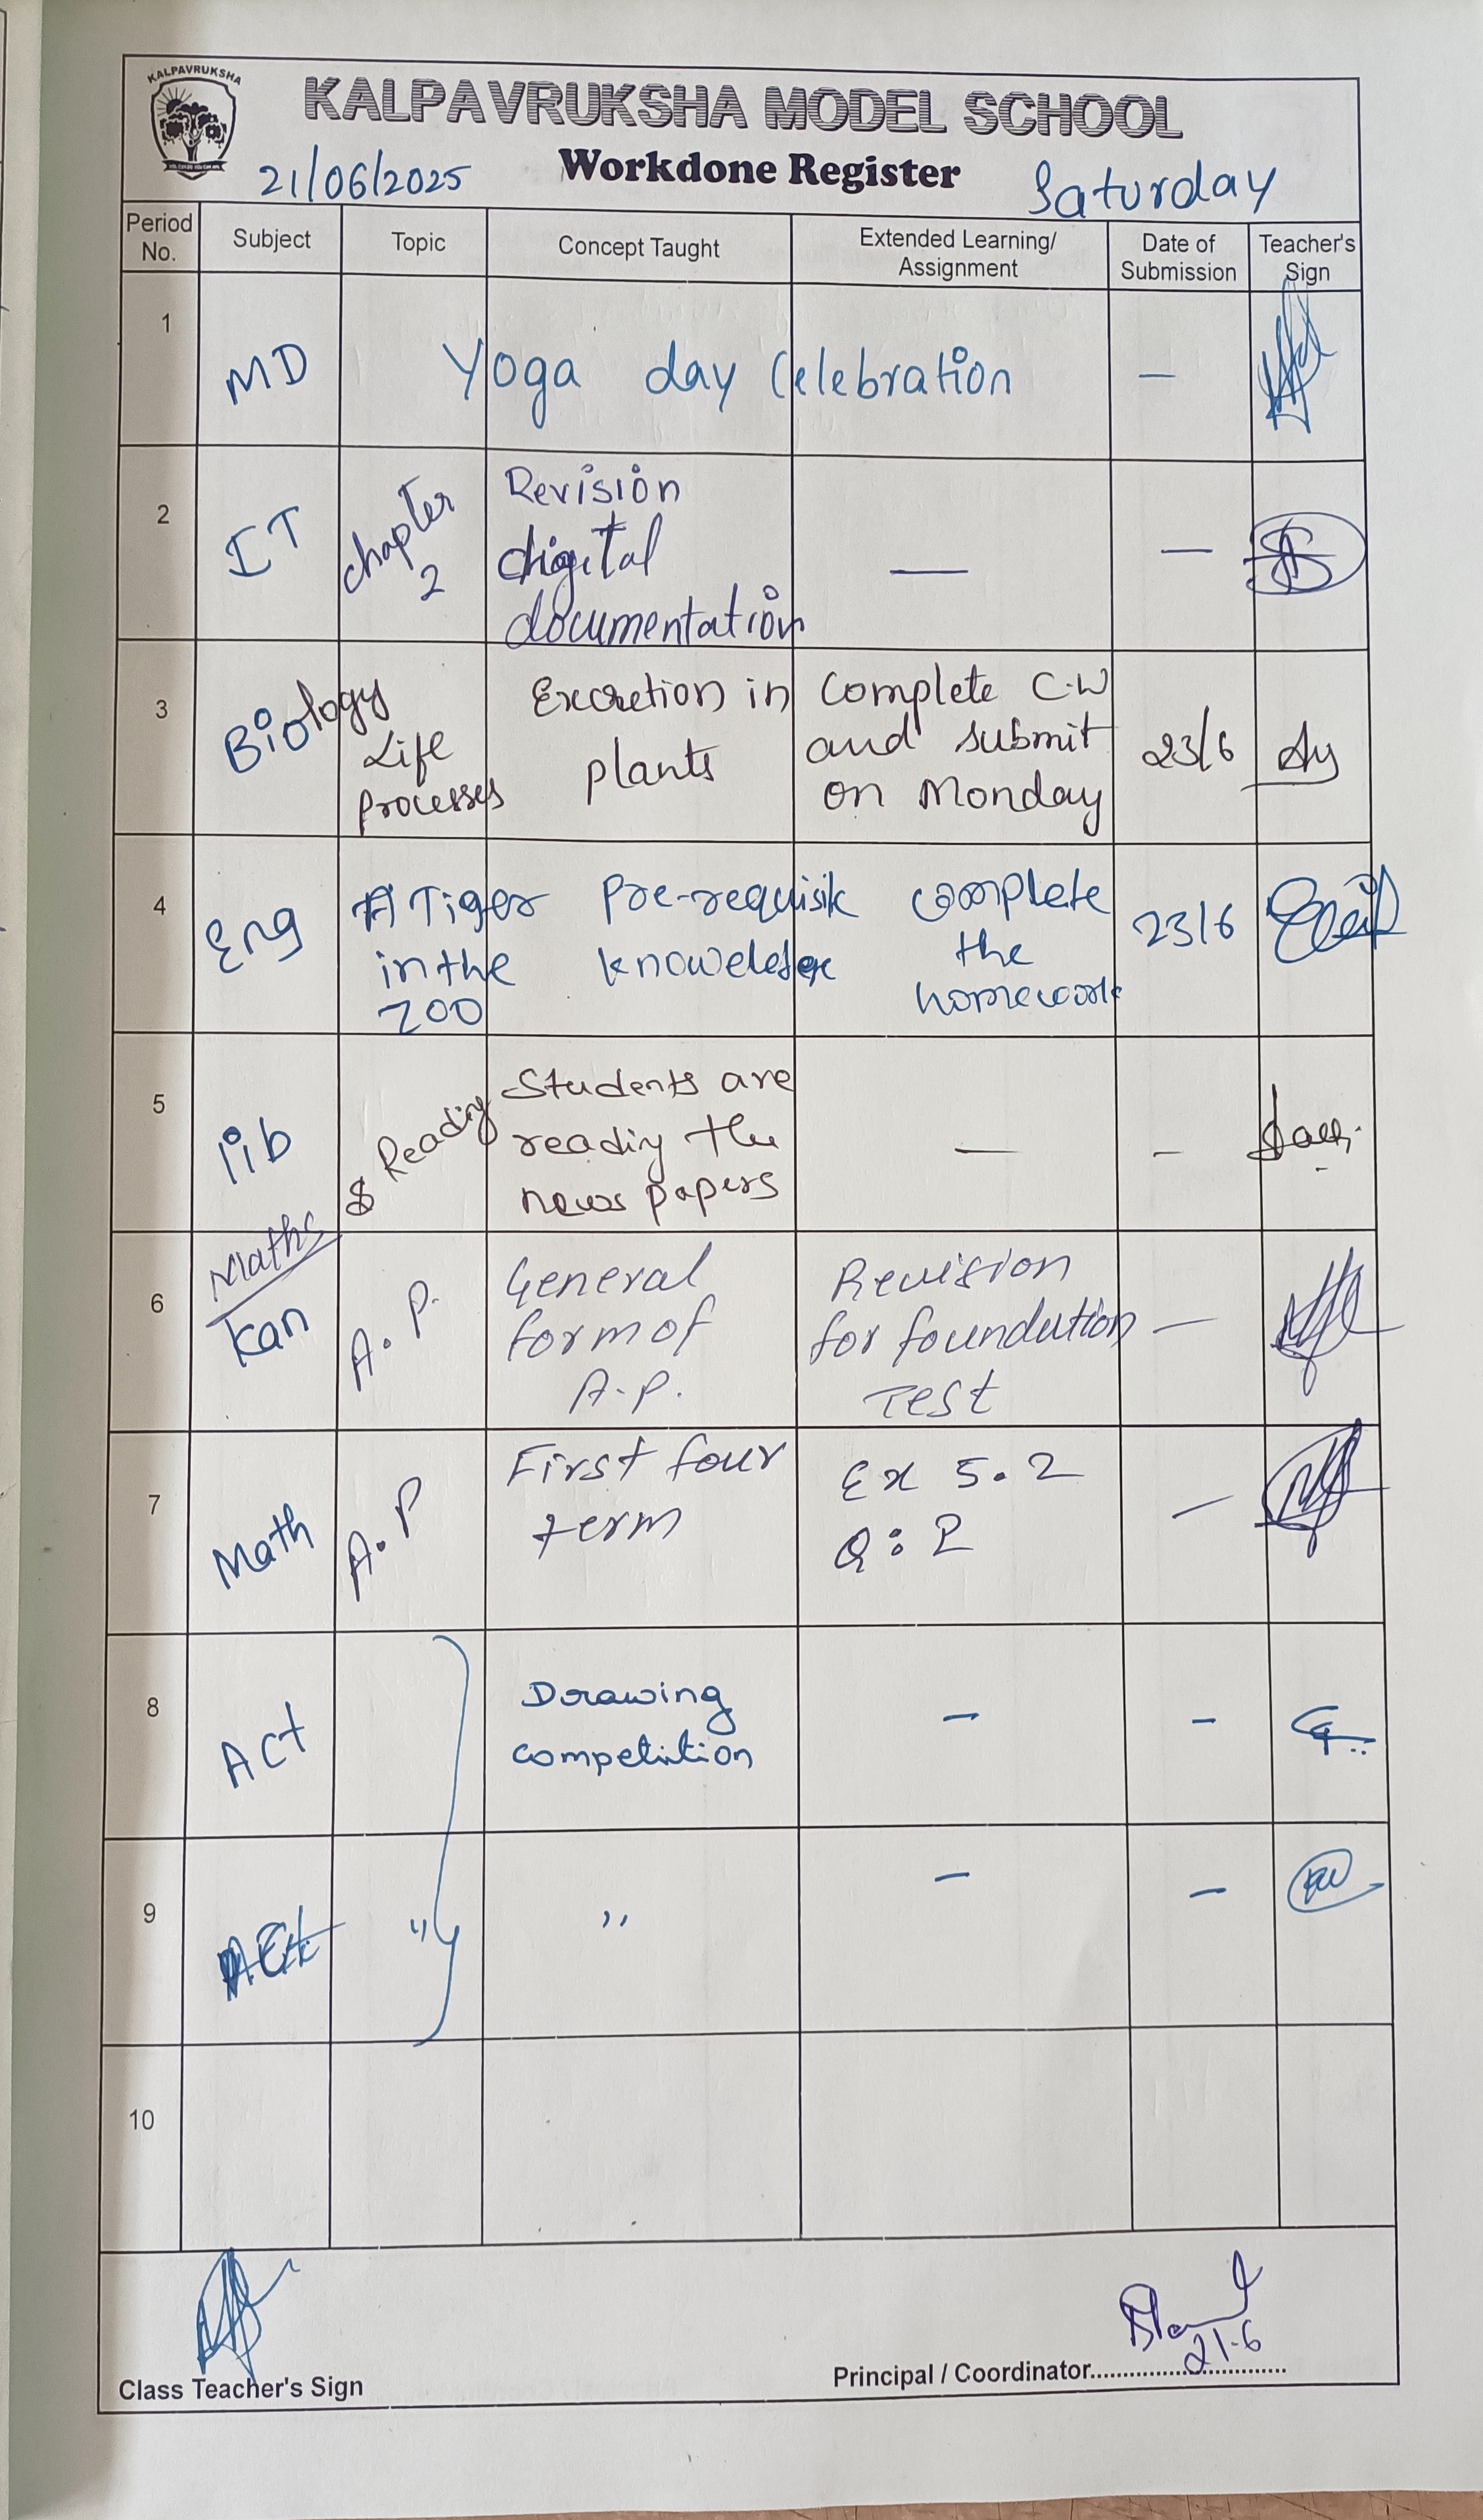 KALPAVRUKSHA
KALPAVRUKSHA MODEL SCHOOL
Workdone Register
21/06/2025
Saturday
Period No.
Subject
Topic
Concept Taught
Extended Learning/
Assignment
Date of
Submission
Teacher's
Sign
1
MD
Yoga day Celebration
—
2
IT
chapter
2
Revision
digital
documentation
—
—
3
Biology
Life
Processes
Excretion in
plants
Complete C.W
and submit
on Monday
23/6
4
Eng
A Tiger
in the
ZOO
Pre-requisite
knoweledge
complete
the
homework
23/6
5
lib
Reading
Students are
reading the
news papers
—
–
6
Maths
Kan
A.P.
General
form of
A.P.
Revision
for foundation
Test
—
7
Math
A.P
First four
term
Ex 5.2
Q: 2
—
8
Act
Drawing
competition
–
–
9
Act
"
"
–
–
10
21.6
Class Teacher's Sign
Principal / Coordinator..............................